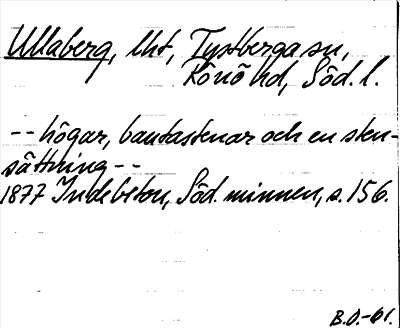 Ullaberg, lht, Tystberga sn,
Rönö hd, Söd. l.
-- högar, bautastenar och en sten-
sättning --
1877 Indebetou, Söd. minnen, s. 156.
B.D.-61.